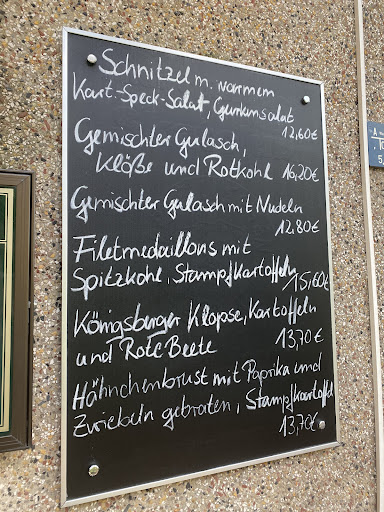 Schnitzel m. warmem
Kart.-Speck-Salat, Gurkensalat
12,60€
Gemischter Gulasch,
Klöße und Rotkohl 16,20€
Gemischter Gulasch mit Nudeln
12,80€
Filetmedaillons mit
Spitzkohl, Stampfkartoffeln
15,60€
Königsberger Klopse, Kartoffeln
und Rote Beete 13,70€
Hähnchenbrust mit Paprika und
Zwiebeln gebraten, Stampfkartoffel
13,70€